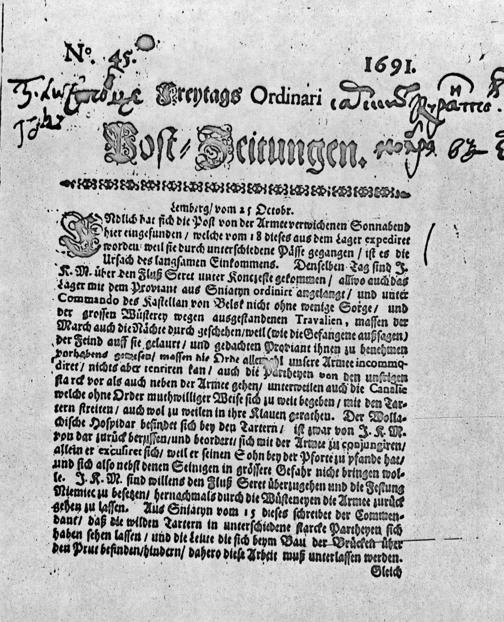 No. 45.
1691.
Freytags Ordinari
Post-Zeitungen.
Lemberg/ vom 25 Octobr.
ENdlich hat sich die Post von der Armee verwichenen Sonnabend
hier eingefunden/ welche vom 18 dieses aus dem Lager expediret
worden/ weil sie durch unterschiedene Pässe gegangen/ ist es die
Ursach des langsamen Einkommens. Denselben Tag sind J.
K. M. über den Fluß Seret unter gekommen/ allwo auch das
Lager mit dem Proviant aus Sniatyn ordinirt angelangt/ und unter
Commando des Kastellan von Belsk nicht ohne wenige Sorge/ und
der grossen Wüsteney wegen ausgestandenen Travalien, massen der
March auch die Nächte durch geschehen/ weil (wie die Gefangene aussagen)
der Feind auff sie gelaurt/ und gedachten Proviant ihnen zu benehmen
vorhabens gewesen/ massen die Orde unsere Armee incommo-
diret/ nichts aber tentiren kan/ auch die Partheyen von den unsrigen
starck vor als auch neben der Armee gehen/ unterweilen auch die Canalie
welche ohne Order muthwilliger Weise sich zu weit begeben/ mit den Tar-
tern streiten/ auch wol zu weilen in ihre Klauen gerathen. Der Wolla-
chische Hospidar befindet sich bey den Tartern/ ist zwar von J. K. M.
von dar zurück beruffen/ und beordert/ sich mit der Armee zu conjungiren/
allein er excusiret sich/ weil er seinen Sohn bey der Pforte zu pfande hat/
und sich also nebst denen Seinigen in grössere Gefahr nicht bringen wol-
le. J. K. M. sind willens den Fluß Seret überzugehen und die Festung
Niemiec zu besetzen/ hernachmals durch die Wüsteneyen die Armee zurück
gehen zu lassen. Aus Sniatyn vom 15 dieses schreibet der Commen-
dant/ daß die wilden Tartern in unterschiedene starcke Partheyen sich
haben sehen lassen/ und die Leute die sich beym Bau der Brücken über
den Prut befinden/ hindern/ dahero diese Arbeit muß unterlassen werden.
Gleich